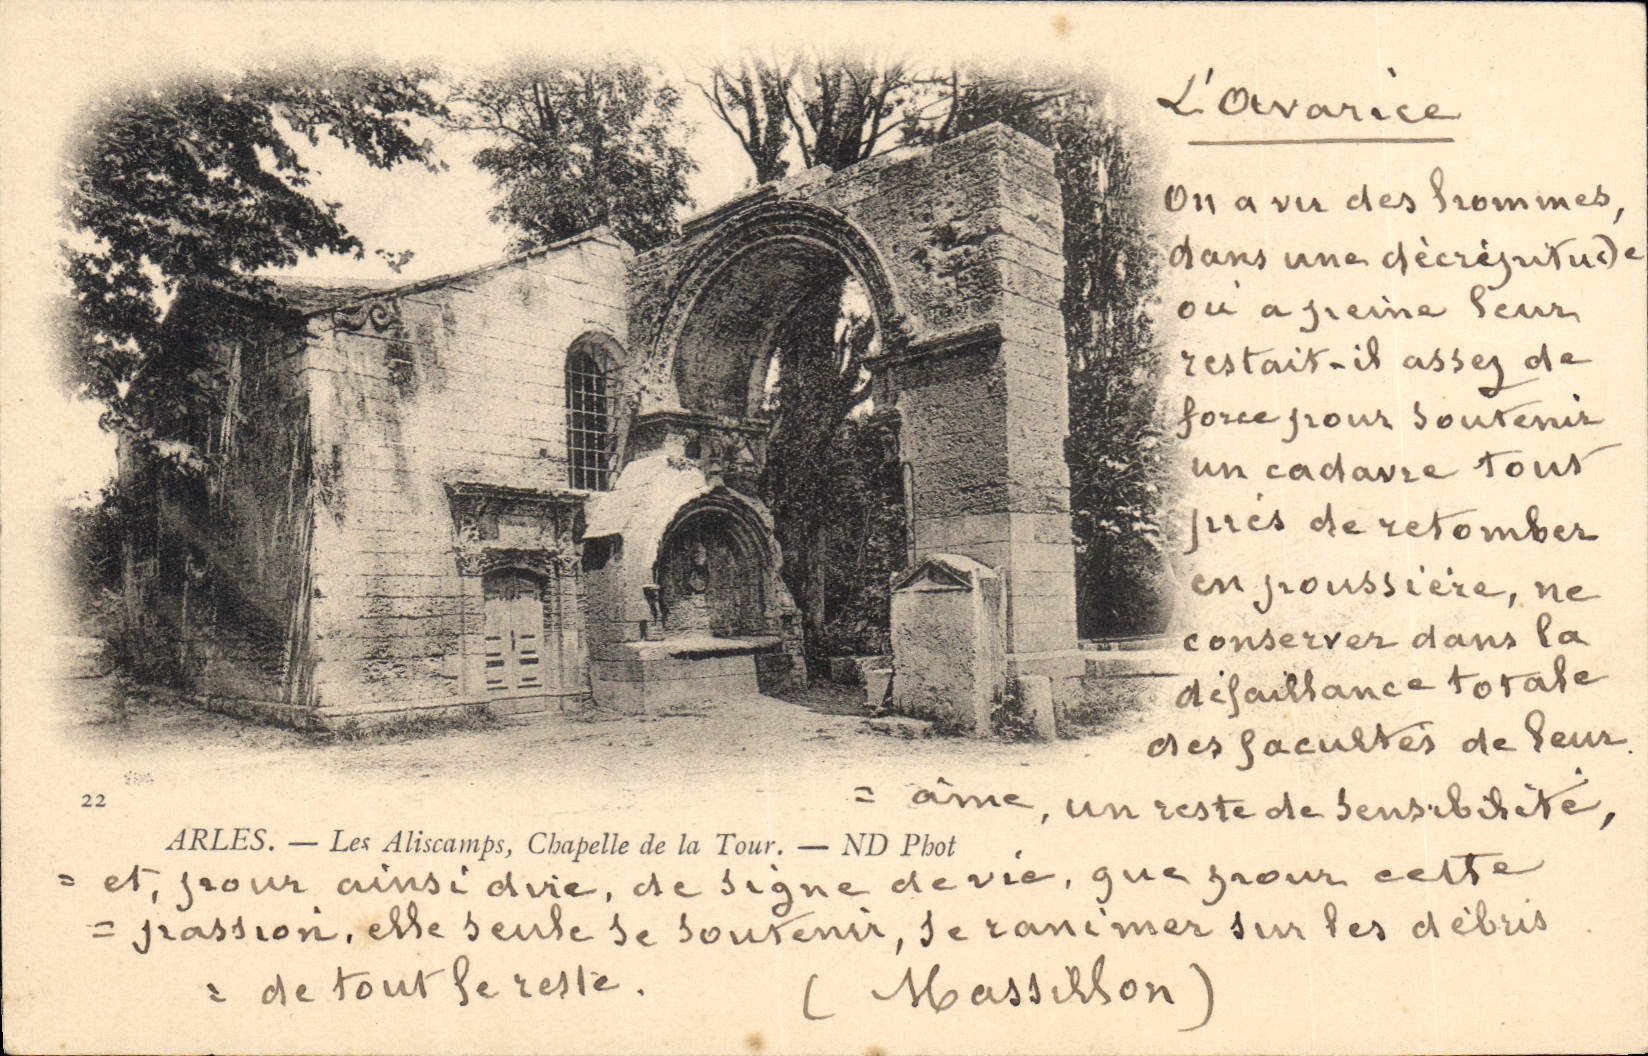 L'Avarice
On a vu des hommes,
dans une décrépitude
où a peine leur
restait-il assez de
force pour soutenir
un cadavre tout
près de retomber
en poussière, ne
conserver dans la
défaillance totale
des facultés de leur
= âme, un reste de sensibilité,
22
ARLES. — Les Aliscamps, Chapelle de la Tour. — ND Phot
= et, pour ainsi dire, de signe de vie, que pour cette
= passion, elle seule se soutenir, se ranimer sur les débris
= de tout le reste. (Massillon)